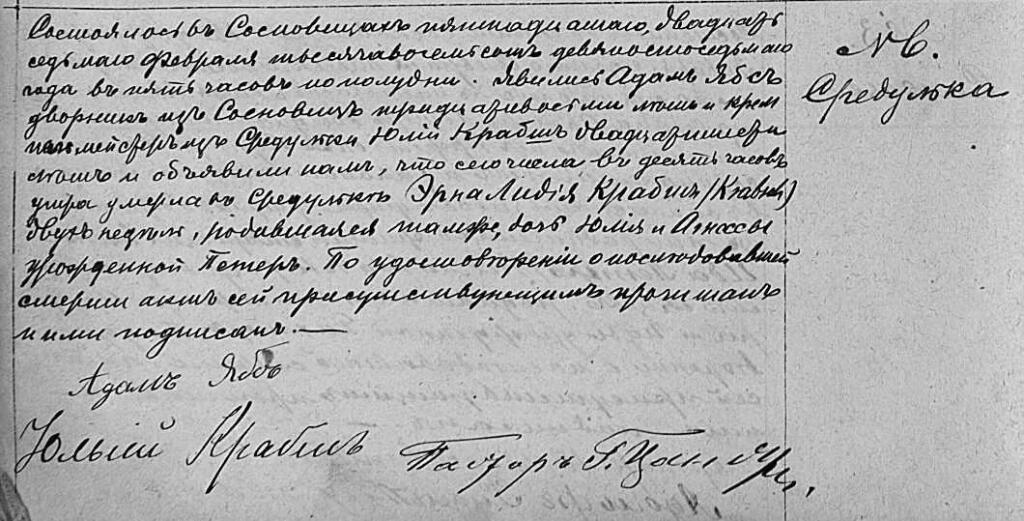 Состоялось въ Сосновицахъ пятнадцатаго, двадцать
седьмаго Февраля тысяча восемьсотъ девяностоседьмаго
года въ пять часовъ по полудни. Явились Адамъ Ябсъ
дворникъ изъ Сосновицъ тридцативосьми лѣтъ и крем
мейстеръ изъ Средулки Юлій Крабшъ двадцатишести
лѣтъ и объявили намъ, что сего числа въ десять часовъ
утра умерла въ Средулкѣ Эрна Лидія Крабшъ
двухъ недѣль, родившаяся тамже, дочь Юлія и Агнессы
урожденной Петеръ. По удостовѣреніи о послѣдовавшей
смерти актъ сей присутствующимъ прочитанъ
и ими подписанъ.—
Адамъ Ябсъ
Юлый Крабшъ Пасторъ Г.
N6.
Средулка